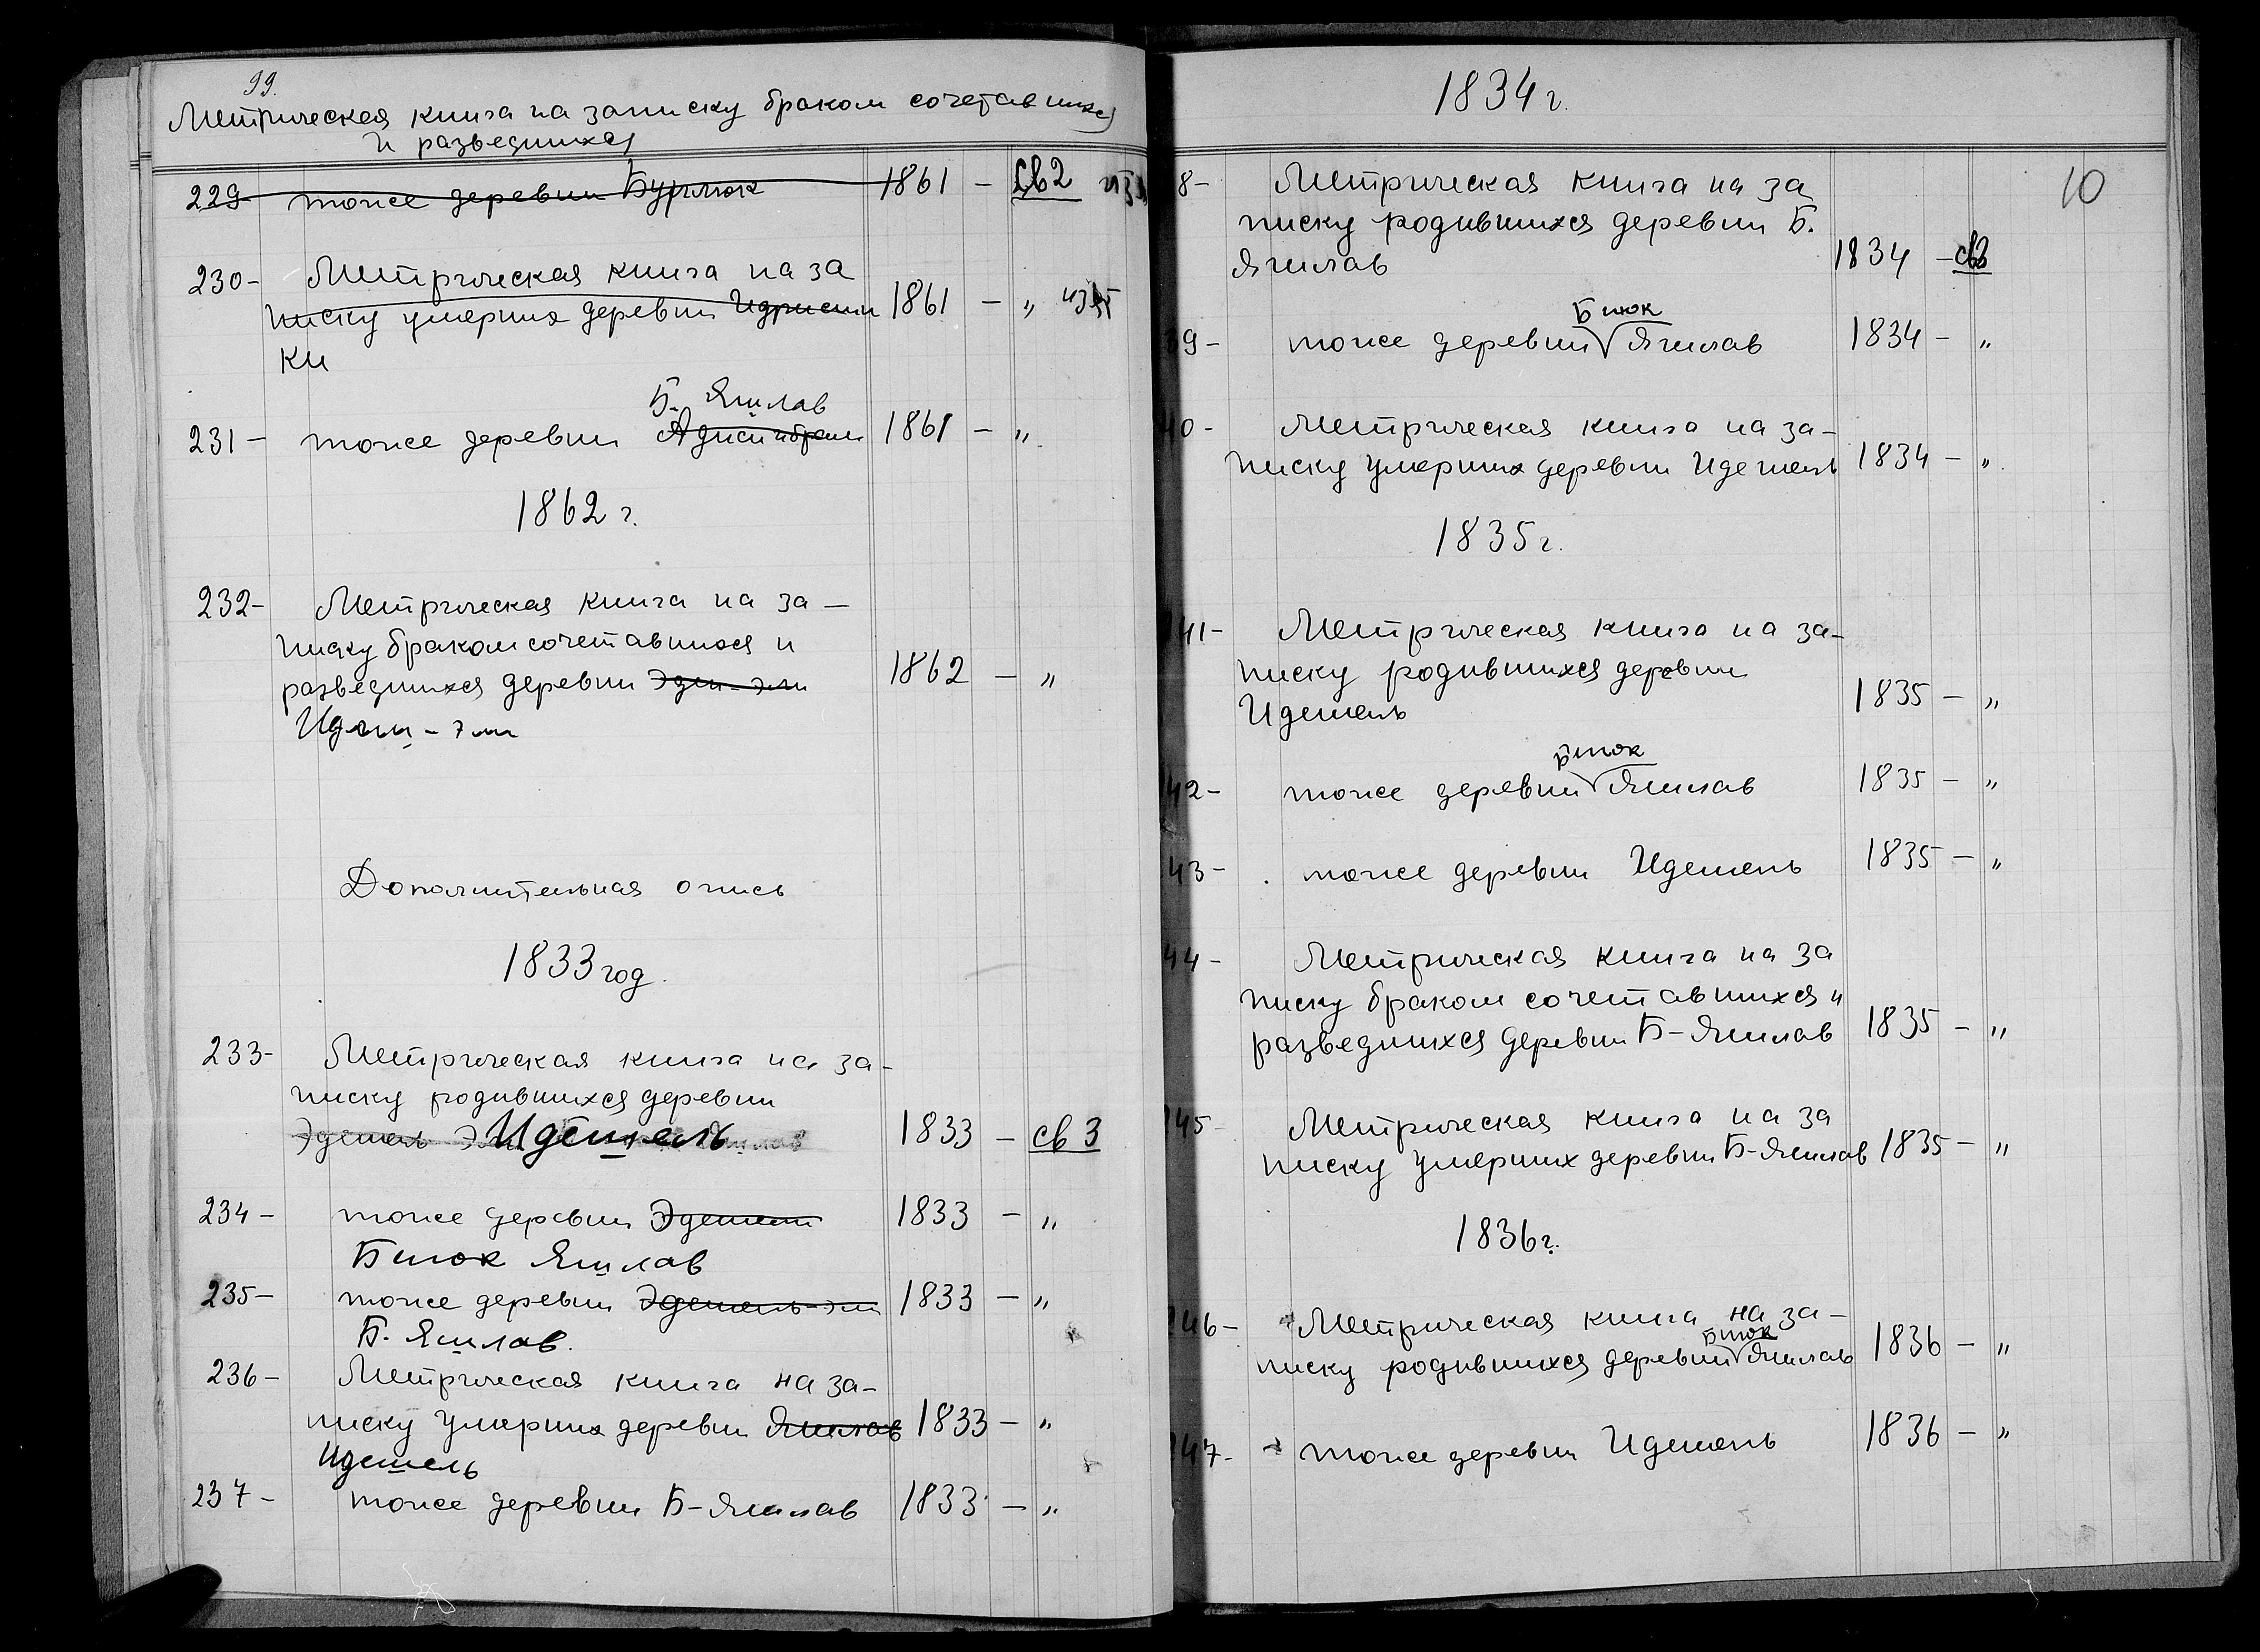 99.
Метрическая книга на записку браком сочетавшихся
и разведшихся
229- тоже деревни Бурлюк 1861 - Св2
230- Метрическая книга на за
писку умерших деревни 1861 - "
ки
Б. Яшлав
231- тоже деревни 1861 - "
1862 г.
232- Метрическая книга на за-
писку браком сочетавшихся и
разведшихся деревни Эдеш-эли 1862 - "
Идеш-эли
Дополнительная опись
1833 год.
233- Метрическая книга на за-
писку родившихся деревни
Эдешель Идешель 1833 - св 3
234- тоже деревни Эдешели 1833 - "
Биюк Яшлав
235- тоже деревни Эдешель-эли 1833 - "
Б. Яшлав.
236- Метрическая книга на за-
писку умерших деревни Яшлав 1833 - "
Идешель
237- тоже деревни Б-Яшлав 1833 - "
1834 г.
10
8- Метрическая книга на за
писку родившихся деревни Б.
Яшлав 1834 - св3
Биюк
39- тоже деревни Яшлав 1834 - "
40- Метрическая книга на за-
писку умерших деревни Идешель 1834 - "
1835 г.
241- Метрическая книга на за-
писку родившихся деревни
Идешель 1835 - "
Биюк
242- тоже деревни Яшлав 1835 - "
43- тоже деревни Идешель 1835 - "
44- Метрическая книга на за
писку браком сочетавшихся и
разведшихся деревни Б-Яшлав 1835 - "
245- Метрическая книга на за
писку умерших деревни Б-Яшлав 1835 - "
1836 г.
246- Метрическая книга на за-
Биюк
писку родившихся деревни Яшлав 1836 - "
247- тоже деревни Идешель 1836 - "